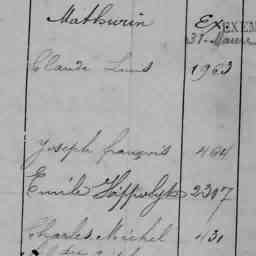 Mathurin Ex. EXEM
31. Maine
Claude Louis 1963
Joseph françois 464
Emile Hippolyte 2307
Charles Michel 431